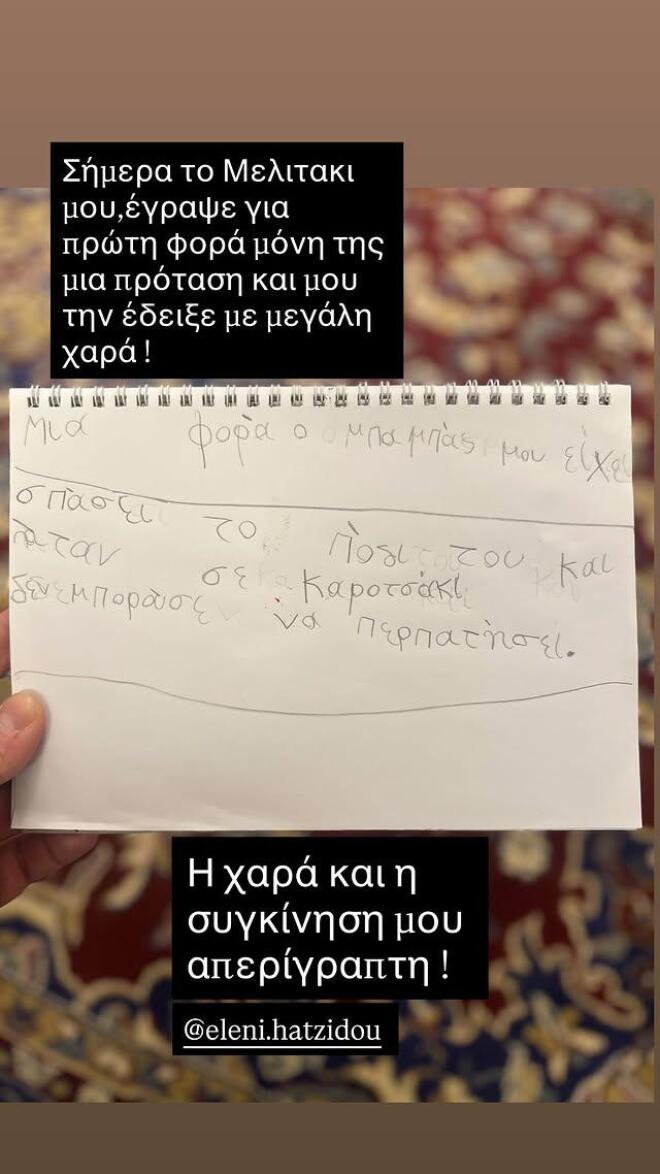 Σήμερα το Μελιτακι
μου,έγραψε για
πρώτη φορά μόνη της
μια πρόταση και μου
την έδειξε με μεγάλη
χαρά !
Μια φορὰ ο μπαμπὰς μου εἰχε
σπὰσει το πὸδι του και
ὰταν σε καροτσὰκι
δεν εμπορουσε να περπατὴσει.
Η χαρά και η
συγκίνηση μου
απερίγραπτη !
@eleni.hatzidou